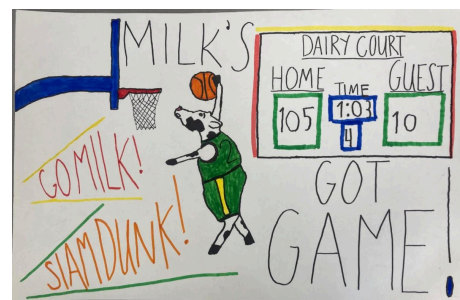 MILK'S
DAIRY COURT
HOME
TIME
GUEST
105
1:03
10
4
GO MILK!
SLAM DUNK!
GOT
GAME!